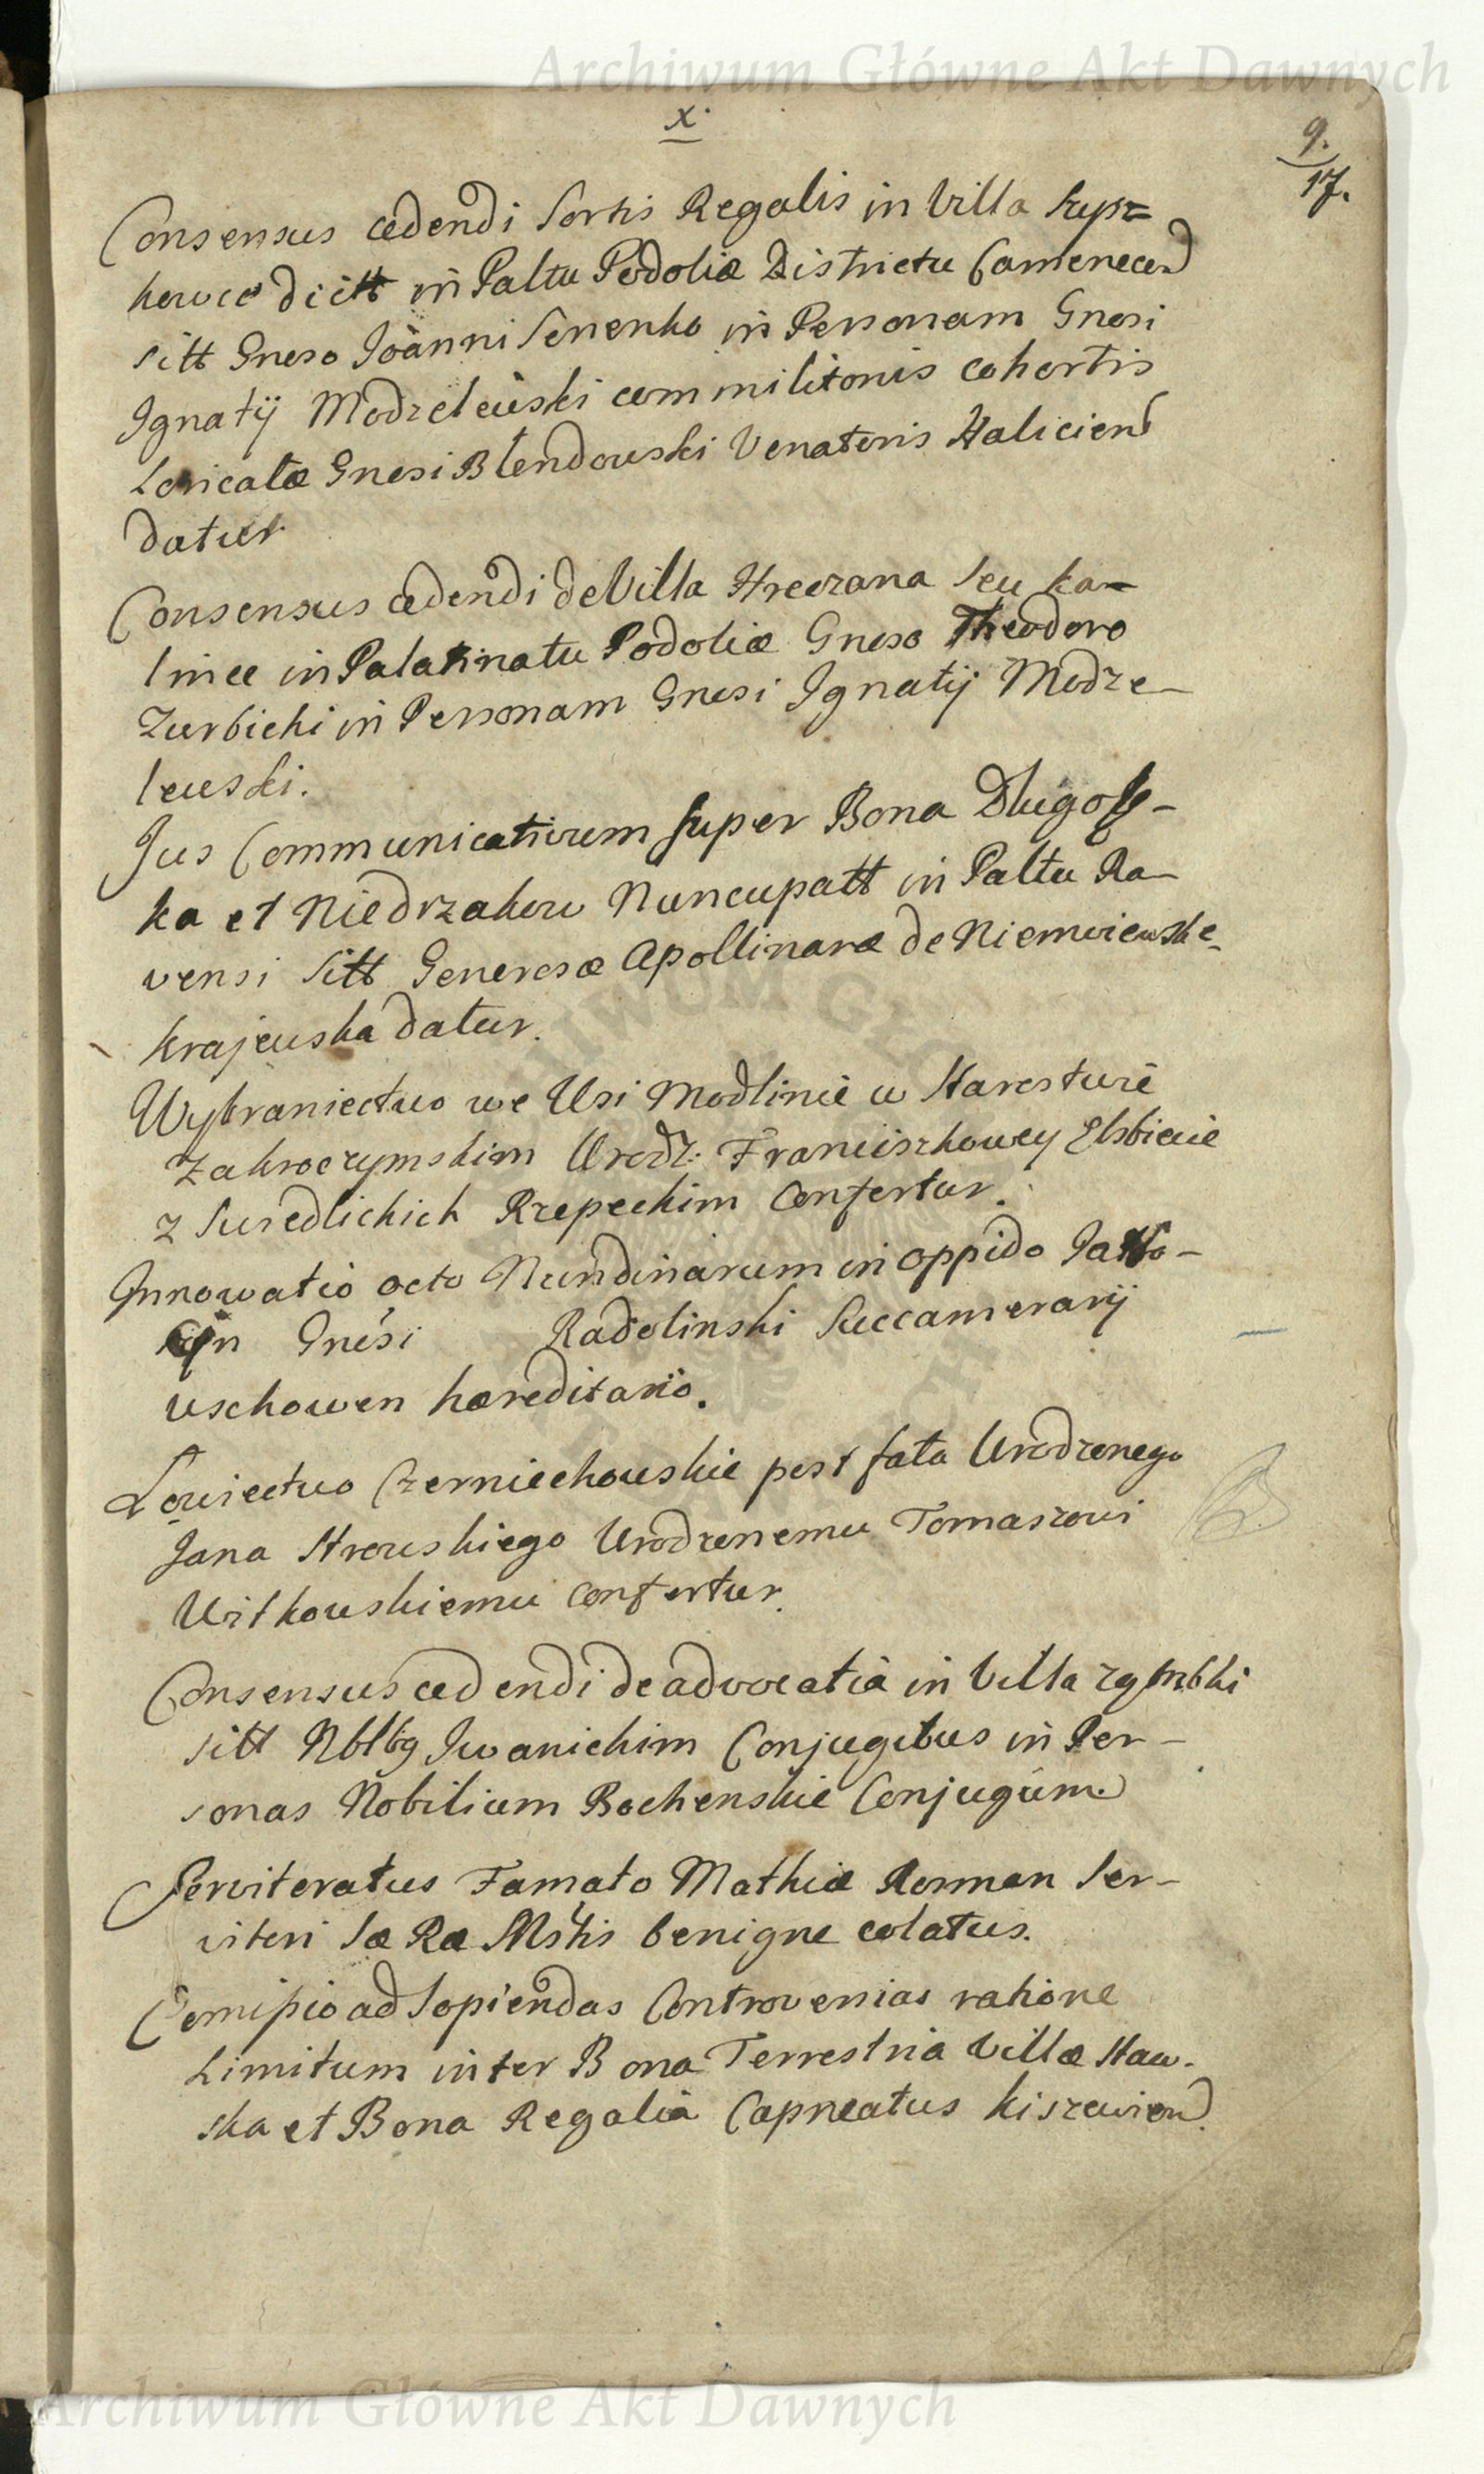 Archiwum Główne Akt Dawnych
x.
9.
17.
Consensus cedendi Sortis Regalis in Villa
dictt in Palttu Podoliæ Districtu Camenecen
sitt Gneso Joanni Senenko in Personam Gnesi
Ignatij Modzelewski commilitonis cohortis
Loricatæ Gnesi Blendowski Venatoris Haliciens
datur
Consensus cedendi de Villa Hreczana seu Ka-
lince in Palatinatu Podoliæ Gneso Theodoro
Zurbicki in Personam Gnesi Ignatij Modze-
lewski.
Jus Communicativum super Bona Długoss-
ka et Niedrzakow Nuncupatt in Palttu Ra-
vensi Sitt Generosæ Apollinaræ de Niemoiewske-
Krajewska datur.
Wybraniectwo we Wsi Modlinie w Starostwie
Zakroczymskim Urodz: Franciszkowey Elsbiecie
z Suredlickich Rzepeckim Confertur.
Innowatio octo Nundinarum in oppido
Gnesi Radolinski Succamerarij
Wschowen hæreditario.
Łowiectwo Czerniechowskie post fata Urodzonego
Jana Urodzonemu Tomaszowi
Witkowskiemu confertur.
Consensus cedendi de advocatia in Villa
sitt Nblbg Iwanickim Conjugibus in Per-
sonas Nobilium Bochenskie Conjugum.
Servitoratus Famato Mathiæ Rorman Ser-
vitori Sæ Ræ Mstis benigne colatus.
Comissio ad Sopiendas Controversias ratione
Limitum inter Bona Terrestria Villæ Staw-
ska et Bona Regalia Capneatus Kiszewien.
Archiwum Główne Akt Dawnych